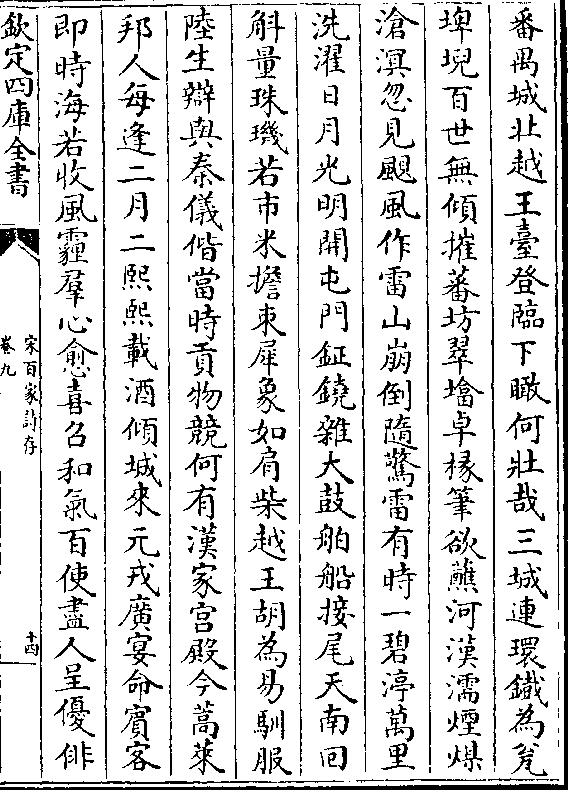 番禺城北越王臺登臨下瞰何壯哉三城連環鐡為瓮
埤堄百世無傾摧蕃坊翠墖卓椽筆欲蘸河漢濡煙煤
滄溟忽見颶風作雷山崩倒隨驚雷有時一碧渟萬里
洗濯日月光明開屯門鉦鐃雜大鼓舶船接尾天南回
斛量珠璣若市米擔束犀象如肩柴越王胡為易馴服
陸生辯與秦儀偕當時貢物競何有漢家宫殿今蒿萊
邦人每逢二月二熙熙載酒傾城來元戎廣宴命賓客
即時海若收風霾羣心愈喜召和氣百使盡人呈優俳
欽定四庫全書
宋百家詩存
卷九
十四